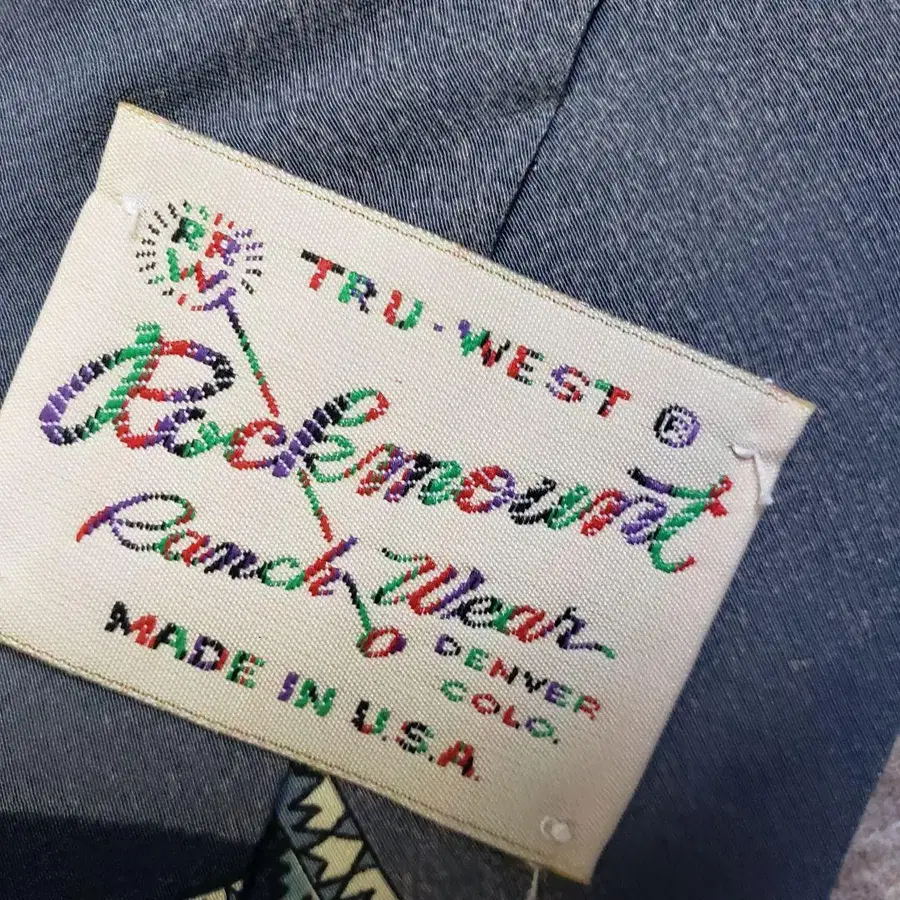 RR
W
TRU-WEST ®
Rockmount
Ranch Wear
DENVER
COLO.
MADE IN U.S.A.